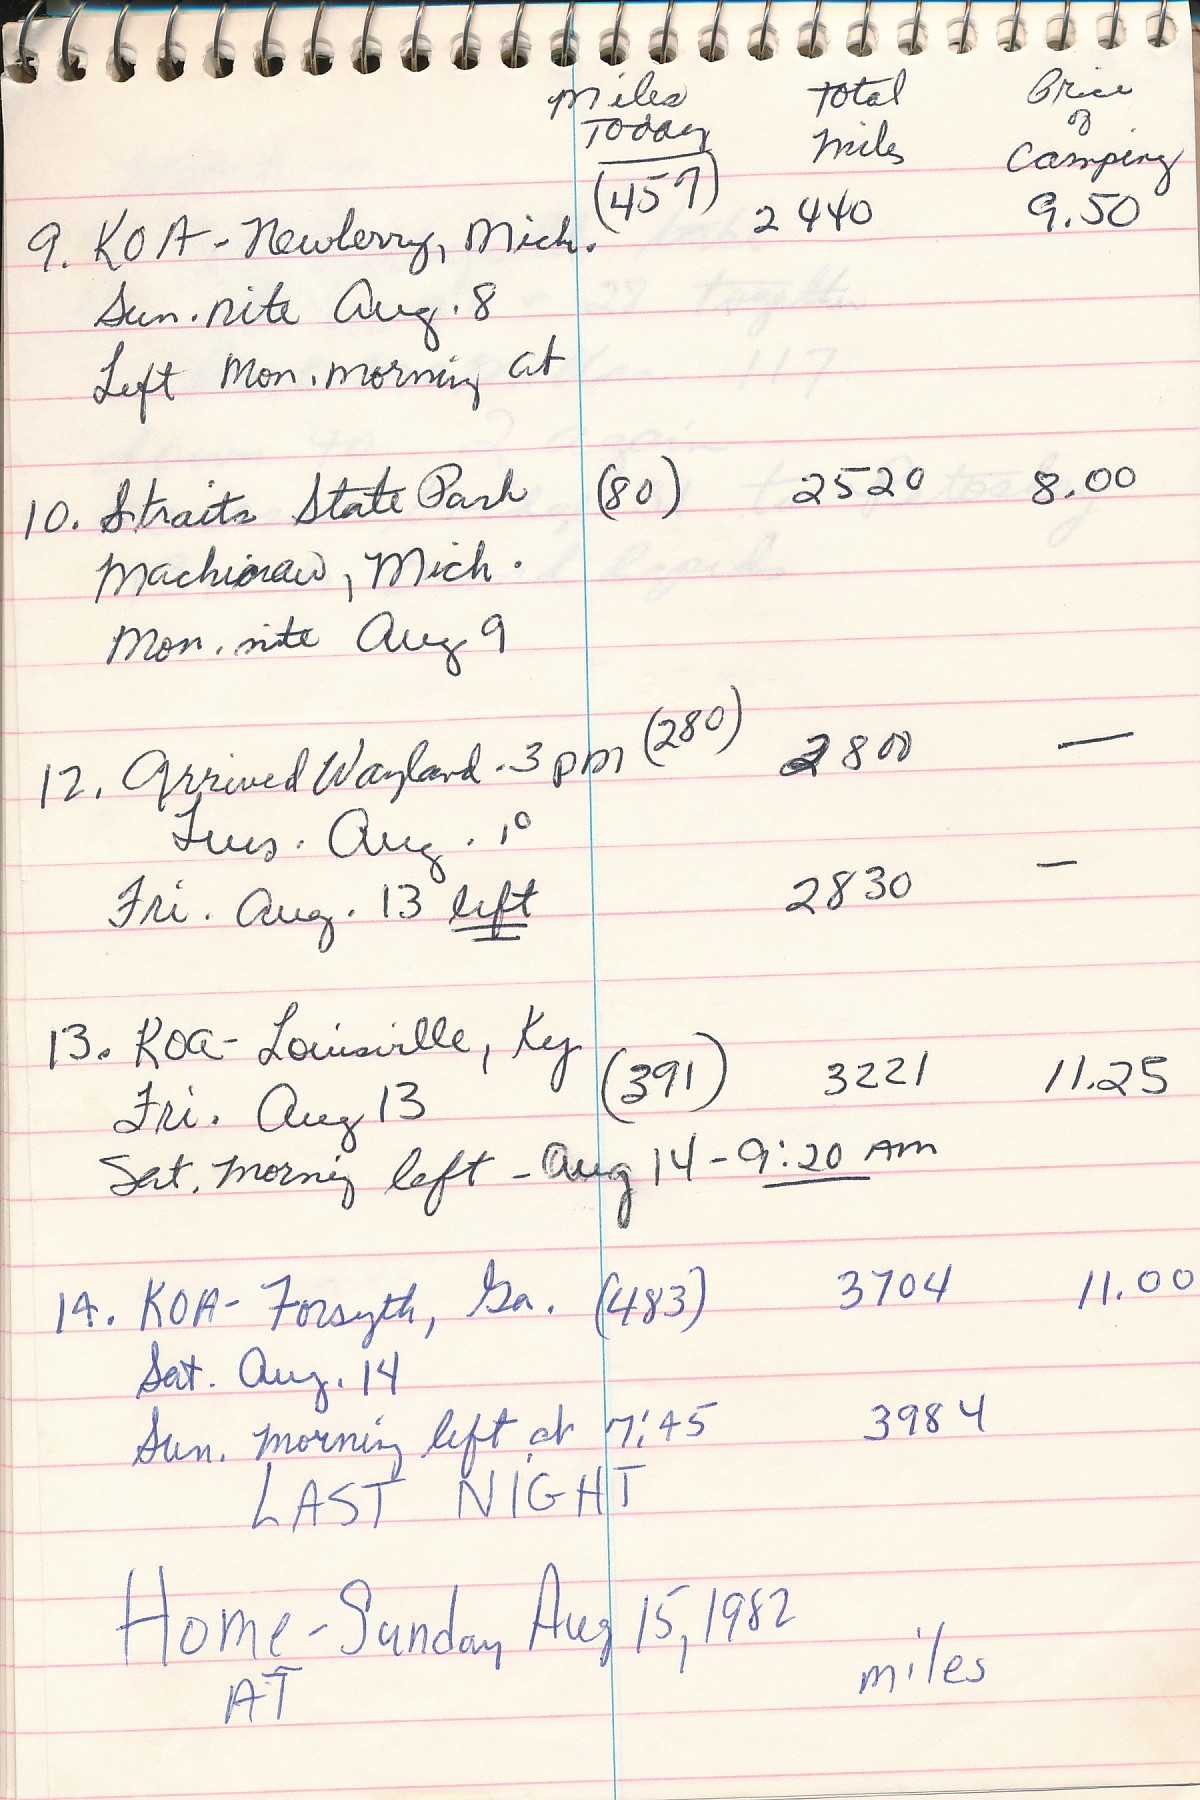 Miles Today
Total miles
Price of Camping
9. KOA - Newberry, Mich. (457) 2440 9.50
Sun. nite Aug. 8
Left Mon. morning at
10. Straits State Park (80) 2520 8.00
Machinaw, Mich.
Mon. nite Aug 9
12. Arrived Wayland - 3 pm (280) 2800 —
Tues. Aug. 10
Fri. Aug. 13 left 2830 —
13. KOA - Louisville, Ky (391) 3221 11.25
Fri. Aug 13
Sat. morning left - Aug 14 - 9:20 AM
14. KOA - Forsyth, Ga. (483) 3704 11.00
Sat. Aug. 14
Sun. morning left at 7:45 3984
LAST NIGHT
Home - Sunday Aug 15, 1982
AT miles